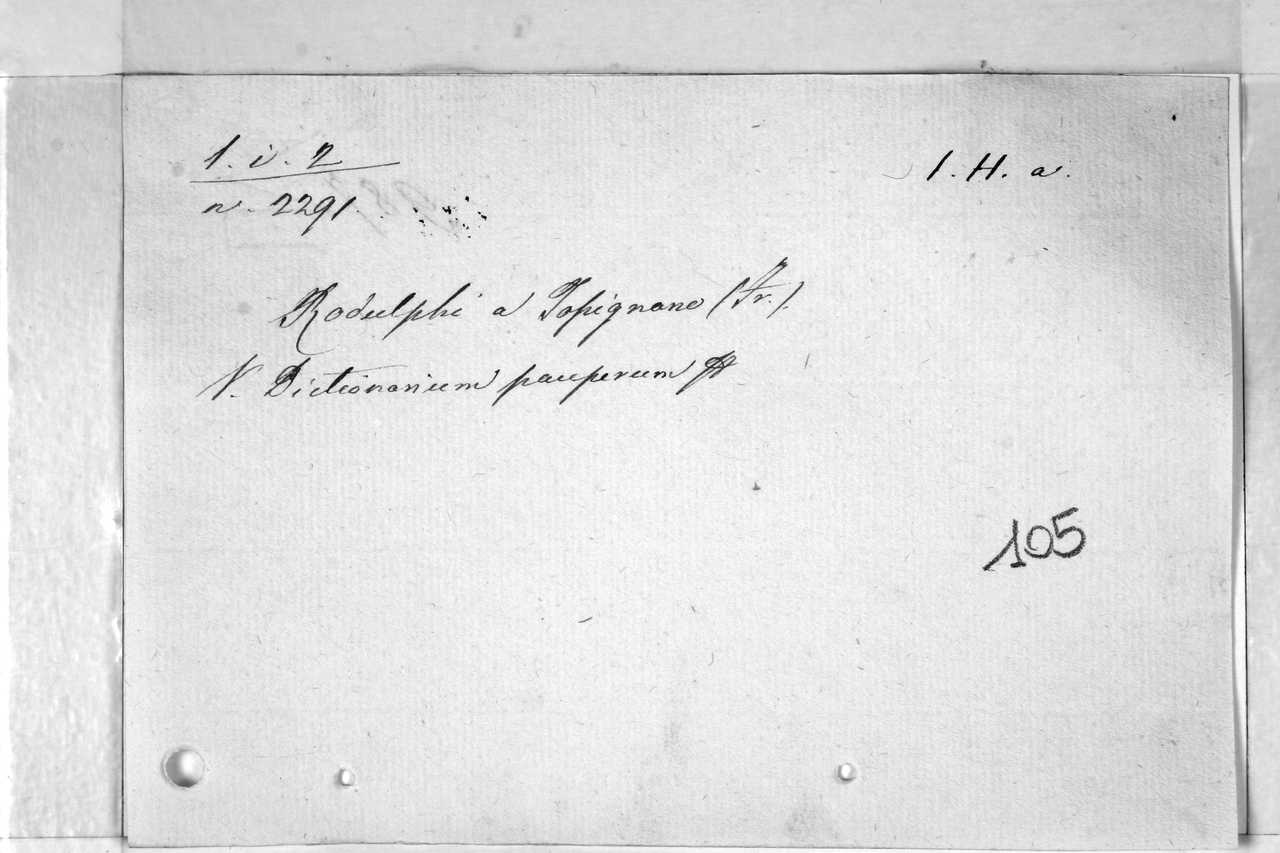 1. i. 2
I. H. a.
n. 2291.
Rodulphi a Tossignano (Fr.).
V. Dictionarium pauperum
105